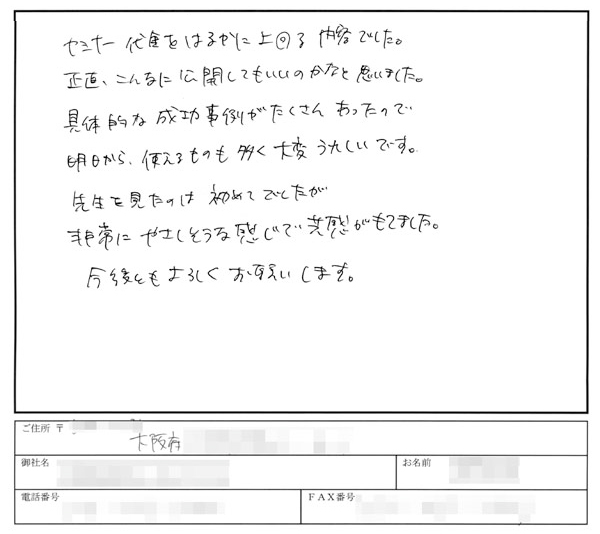 セミナー代金をはるかに上回る内容でした。
正直、こんなに公開してもいいのかなと思いました。
具体的な成功事例がたくさんあったので
明日から、使えるものも多く大変うれしいです。
先生を見たのは初めてでしたが
非常にやさしそうな感じで共感がもてました。
今後ともよろしくお願いします。
ご住所 〒
大阪府
御社名
お名前
電話番号
FAX番号